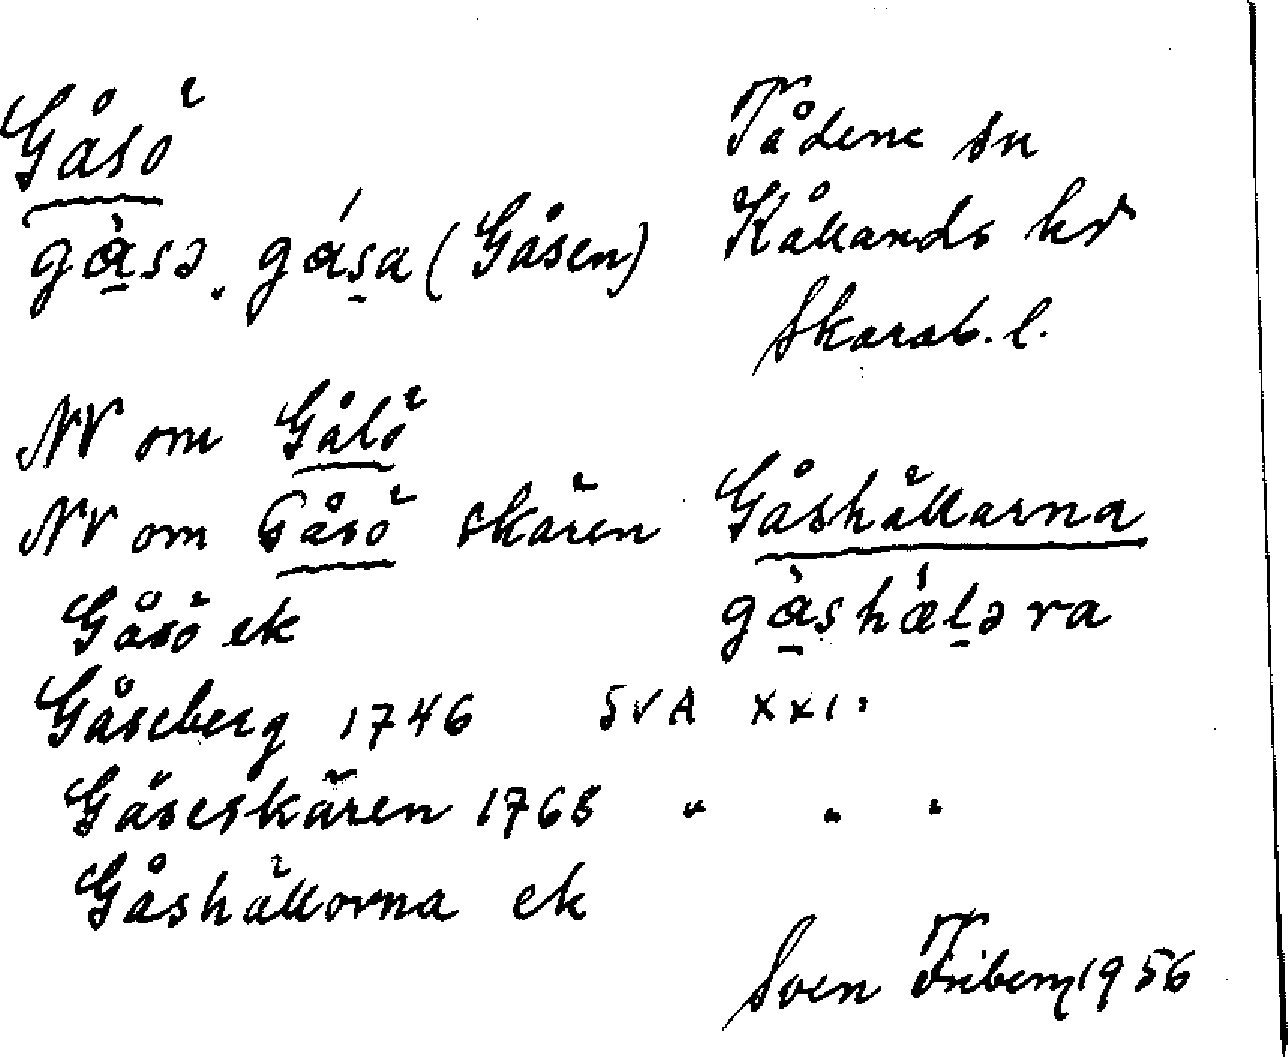 Gåsö
Tådene sn
gàsə, gása (Gåsen)
Kållands hd
Skarab. l.
NV om Gålö
NV om Gåsö skären
Gåshällarna
Gåsö ek
gàshǽləra
Gåseberg 1746 SVA XXI:
Gåseskären 1768 " " "
Gåshällorna ek
Sven Friberg 1956